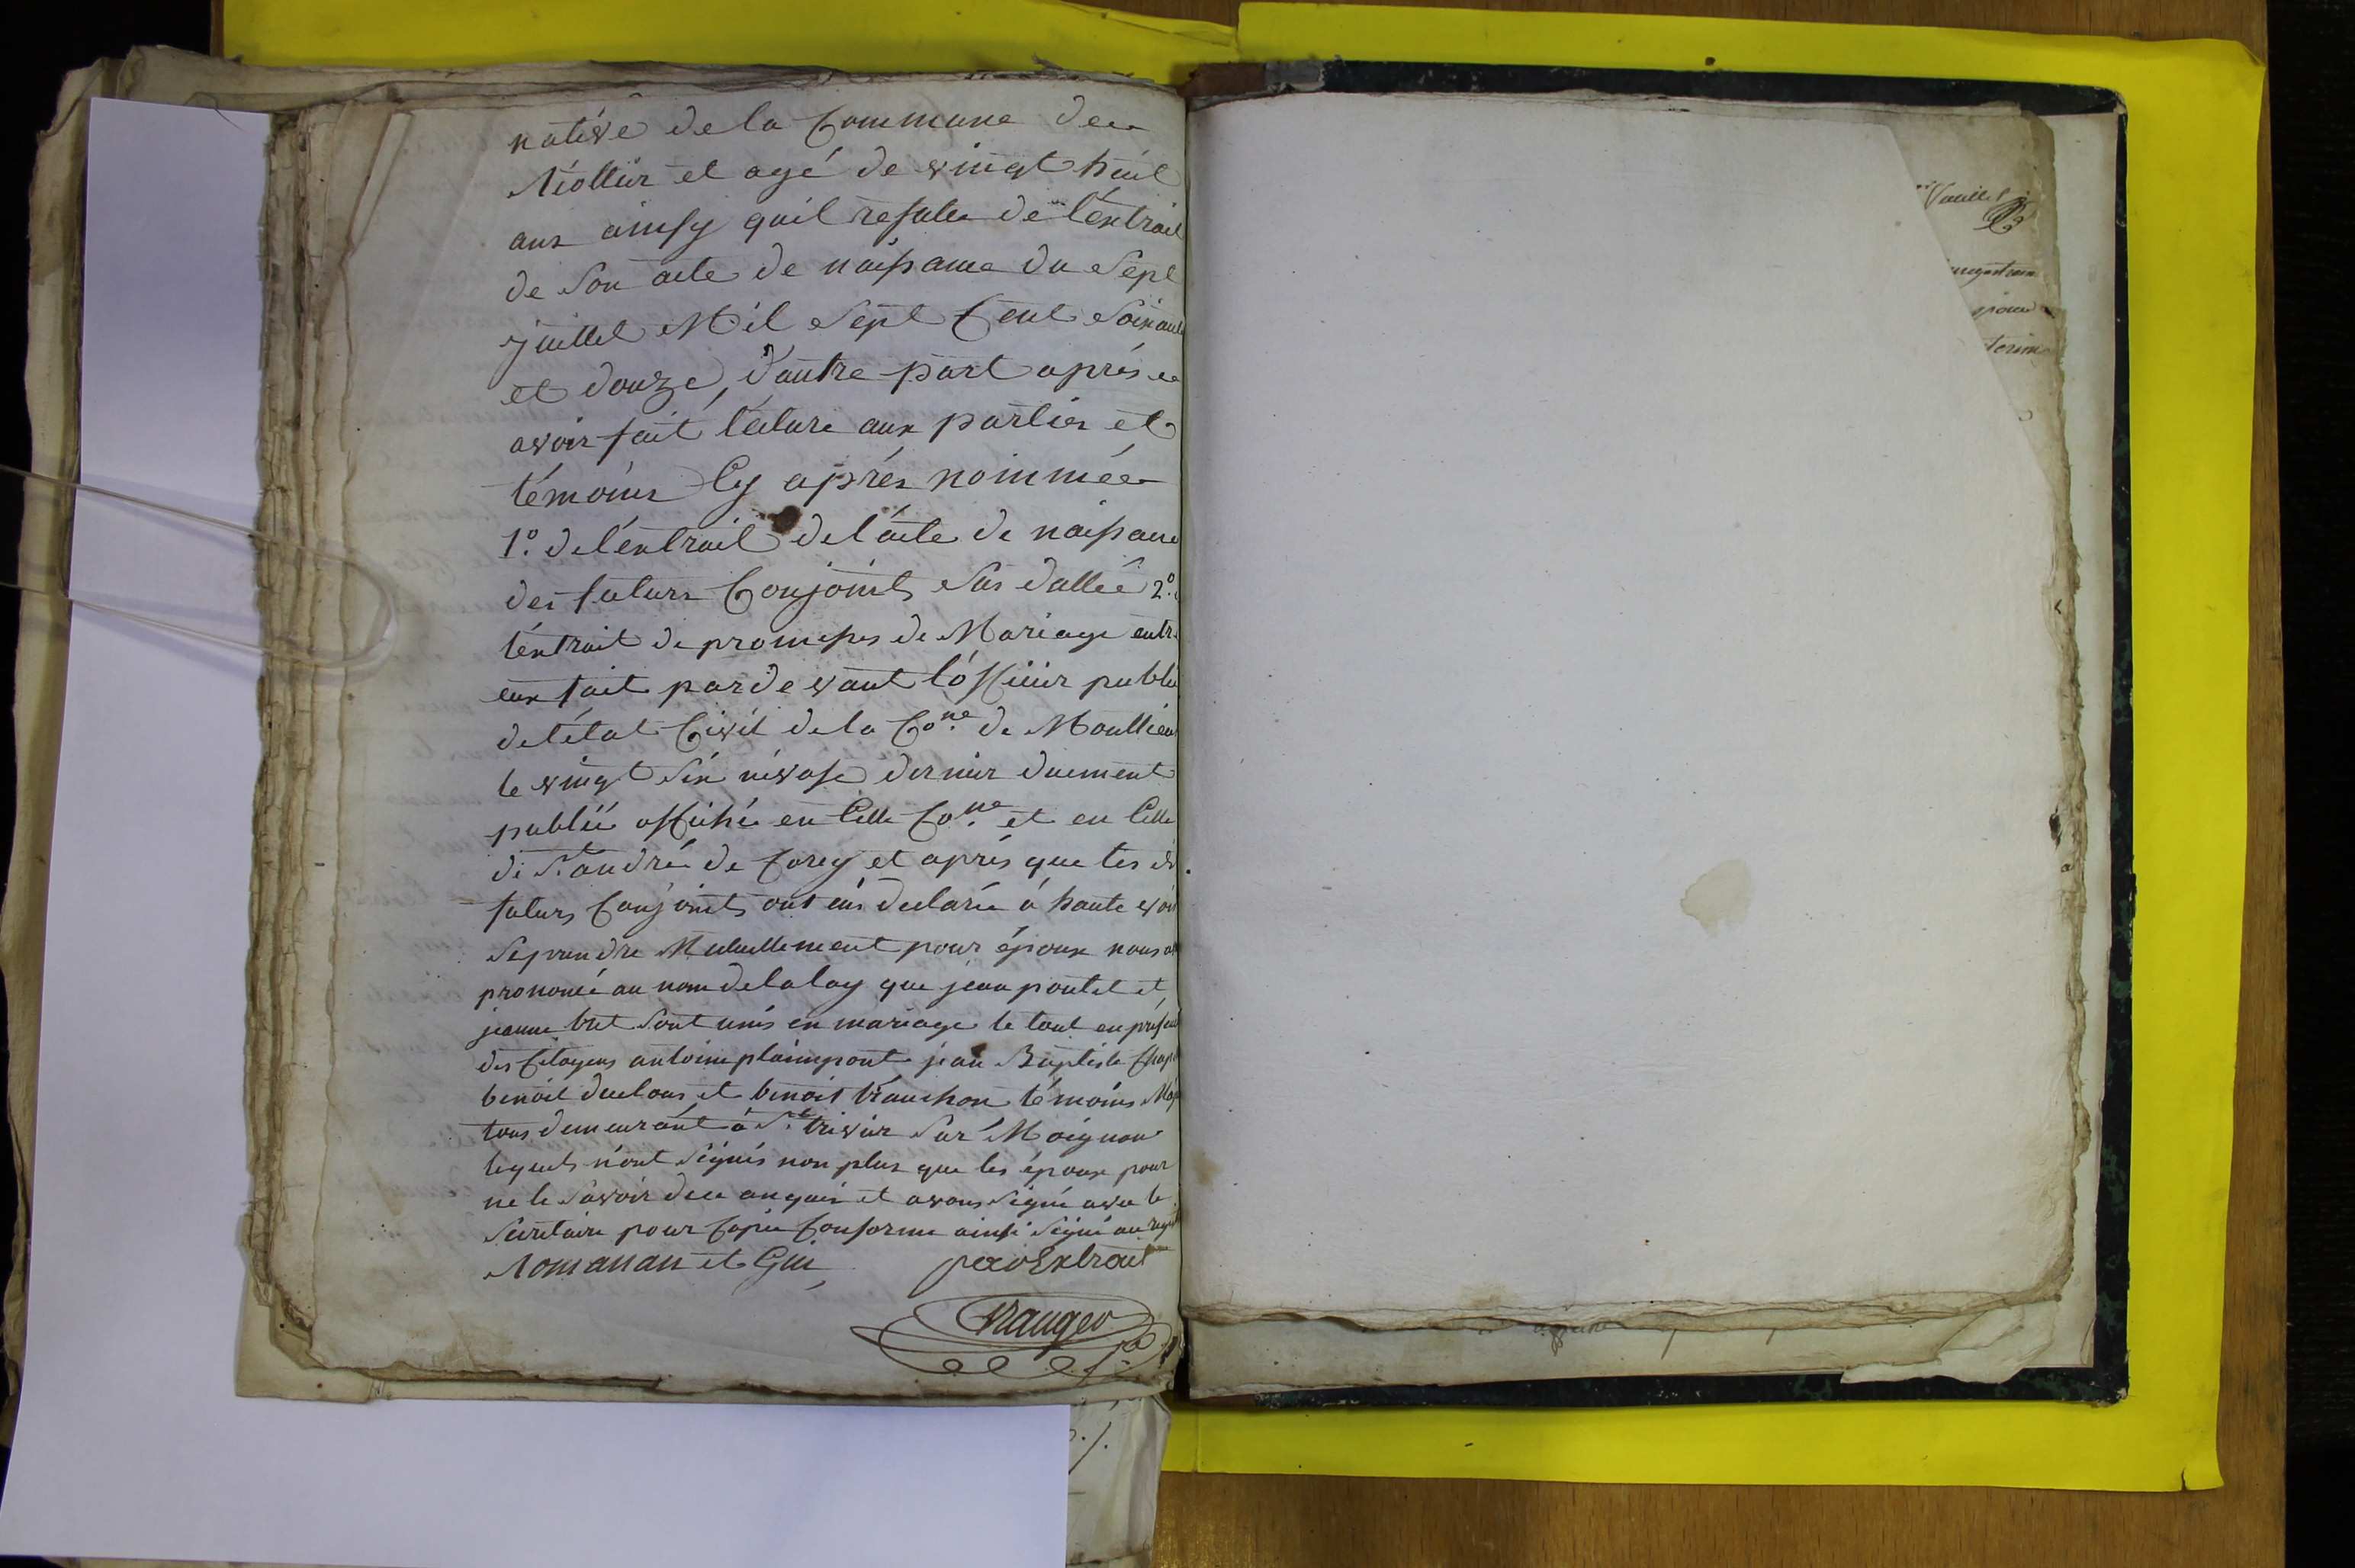 native de la Commune de
Riottier et agé de vingt huit
ans ainsy quil resulte de l'extrait
de Son acte de naissance du Sept
juillet Mil Sept Cent Soixante
et douze, d'autre part après
avoir fait lecture aux parties et
témoins Cy après nommée
1º. de l'extrait de l'acte de naissance
des futurs Conjoints Sus dattée 2º.
l'extrait de promesses de Mariage entre
eux fait par devant l'officier public
de l'état Civil de la Co.ne de
le vingt Six nivose dernier duement
publié affiché en Celle Co.ne et en Celle
de St. andré de Corcy et après que les
futurs Conjoints ont eus declaré à haute voix
Se prendre Mutuellement pour époux nous
prononcé au nom de la loy que jean poutet et
jeanne bret Sont unis en mariage le tout en présence
des Citoyens antoine plaimpont jean Baptiste
benoit duclous et benoit branchon témoins
tous demeurant à St. trivier Sur Moignan
lequels n'ont Signés non plus que les époux pour
ne le Savoir de ce enquis et avons Signé avec le
Secretaire pour Copie Conforme ainsi Signé au
Romanan et Gui pour Extrait